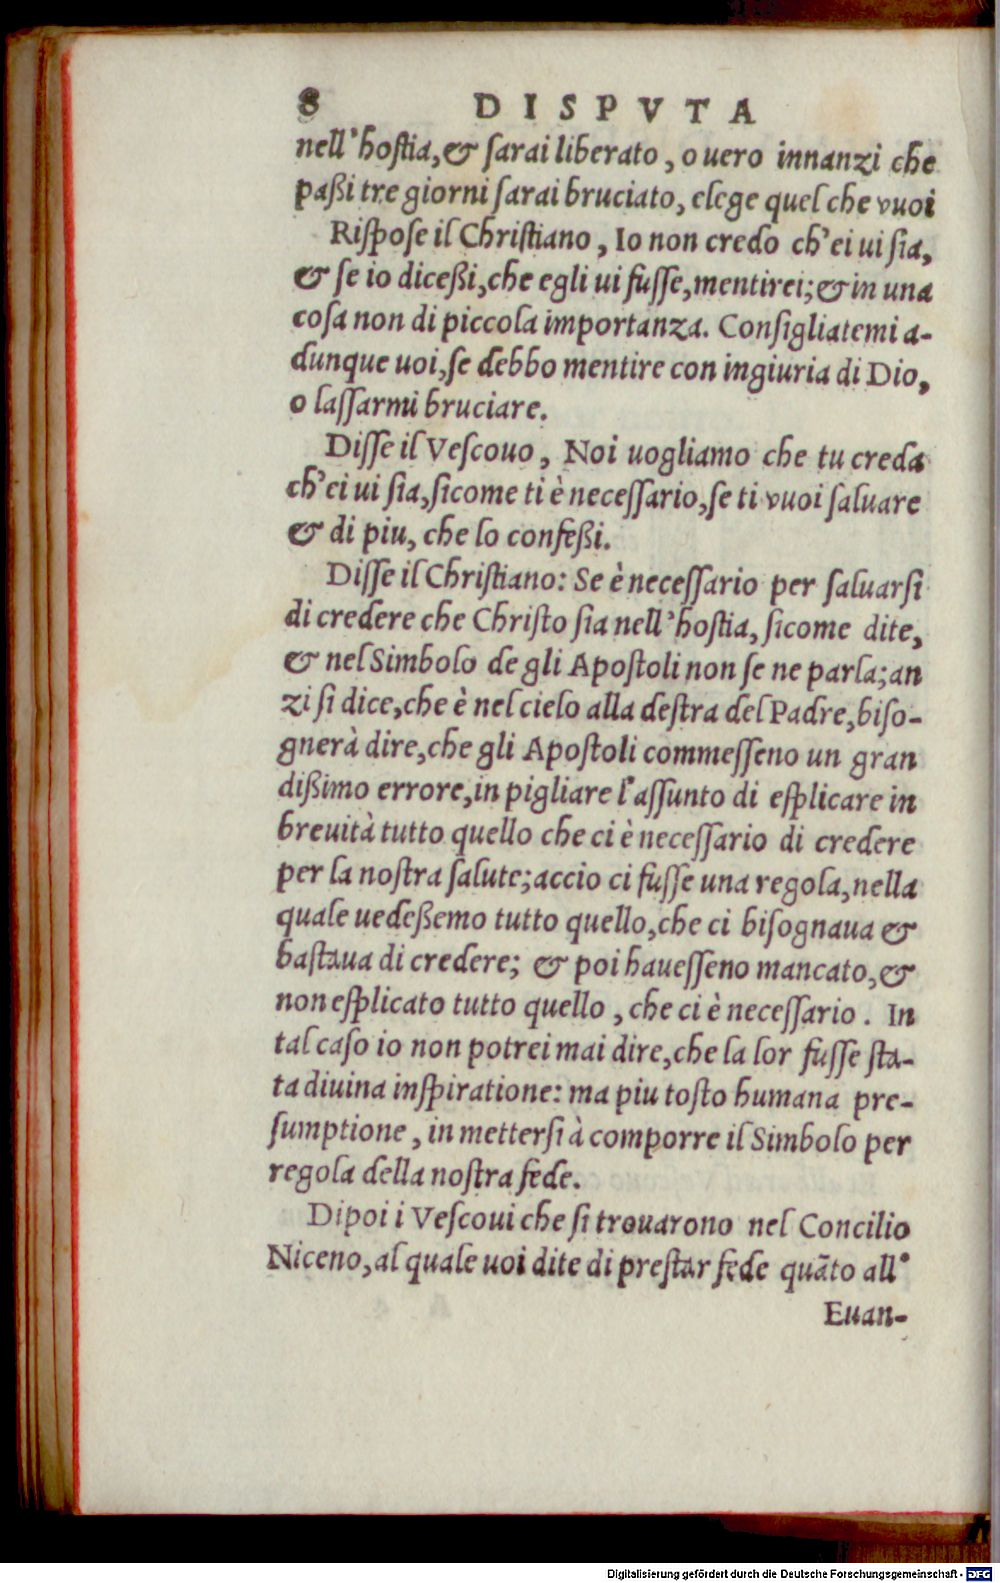 8 DISPVTA
nell'hostia, & sarai liberato, o uero innanzi che
paßi tre giorni sarai bruciato, elege quel che vuoi
Rispose il Christiano, Io non credo ch'ei ui sia,
& se io diceßi, che egli ui fusse, mentirei; & in una
cosa non di piccola importanza. Consigliatemi a-
dunque uoi, se debbo mentire con ingiuria di Dio,
o lassarmi bruciare.
Disse il Vescouo, Noi uogliamo che tu creda
ch'ei ui sia, sicome ti è necessario, se ti vuoi saluare
& di piu, che lo confeßi.
Disse il Christiano: Se è necessario per saluarsi
di credere che Christo sia nell'hostia, sicome dite,
& nel Simbolo de gli Apostoli non se ne parla; an
zi si dice, che è nel cielo alla destra del Padre, biso-
gnerà dire, che gli Apostoli commesseno un gran
dißimo errore, in pigliare l'assunto di esplicare in
breuità tutto quello che ci è necessario di credere
per la nostra salute; accio ci fusse una regola, nella
quale uedeßemo tutto quello, che ci bisognaua &
bastaua di credere; & poi hauesseno mancato, &
non esplicato tutto quello, che ci è necessario. In
tal caso io non potrei mai dire, che la lor fusse sta-
ta diuina inspiratione: ma piu tosto humana pre-
sumptione, in mettersi à comporre il Simbolo per
regola della nostra fede.
Dipoi i Vescoui che si trouarono nel Concilio
Niceno, al quale uoi dite di prestar fede quãto all'
Euan-
Digitalisierung gefördert durch die Deutsche Forschungsgemeinschaft - DFG